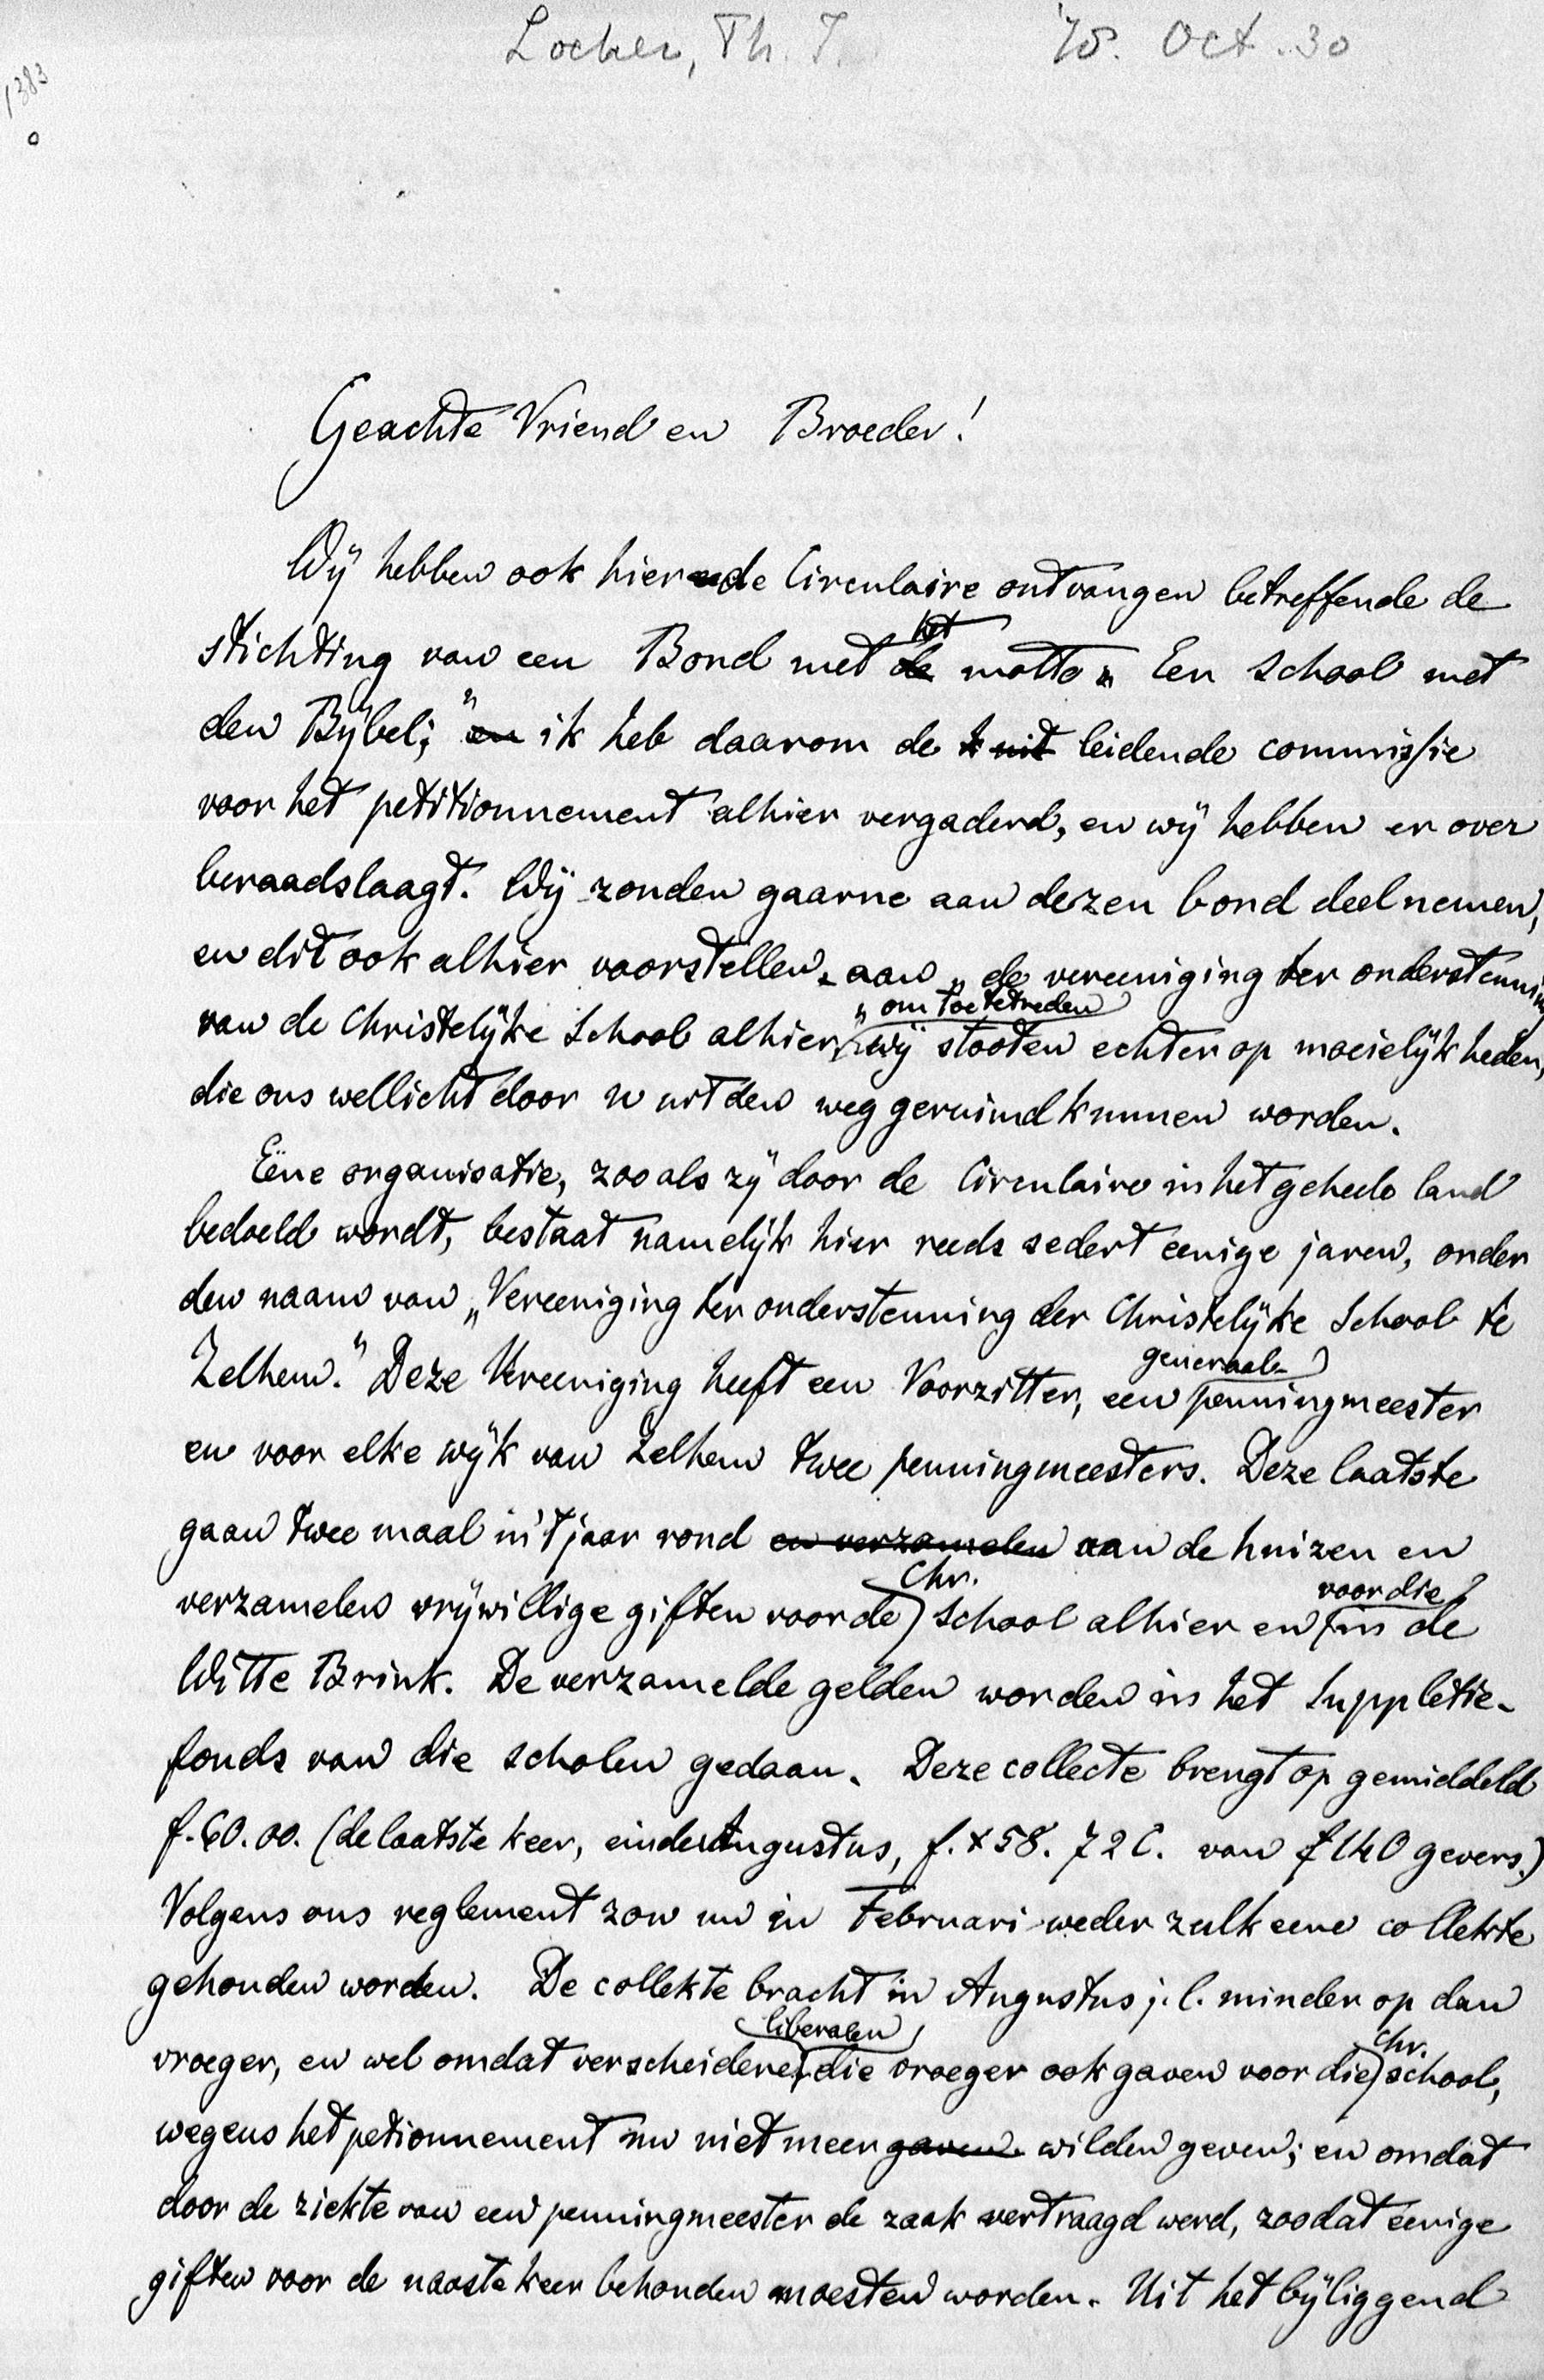 Locher, Th. J. '78. Oct. 30
1383
0
Geachte Vriend en Broeder!
Wij hebben ook hier de Circulaire ontvangen betreffende de
het
stichting van een Bond met de motto „Een School met
den Bijbel;" en ik heb daarom de uit leidende commissie
voor het petitionnement alhier vergaderd, en wij hebben er over
beraadslaagt. Wij zouden gaarne aan dezen bond deel nemen,
en dit ook alhier voorstellen aan „de vereeniging ter ondersteuning
" om toe te treden
van de Christelijke School alhier, wij stooten echter op moeielijkheden,
die ons wellicht door u uit den weg geruimd kunnen worden.
Eene organisatie, zooals zij door de Circulaire in het geheele land
bedoeld wordt, bestaat namelijk hier reeds sedert eenige jaren, onder
den naam van „Vereeniging ter ondersteuning der Christelijke School te
Zelhem." Deze Vereeniging heeft een Voorzitter, een penningmeester
generaal-
en voor elke wijk van Zelhem twee penningmeesters. Deze laatste
gaan twee maal in 't jaar rond en verzamelen aan de huizen en
Chr. voor die
verzamelen vrijwillige giften voor de school alhier en in de
Witte Brink. De verzamelde gelden worden in het Suppletie-
fonds van die scholen gedaan. Deze collecte brengt op gemiddeld
f. 60.00. (de laatste keer, einde Augustus, f. 58. 72 C. van 140 gevers.)
Volgens ons reglement zou nu in Februari weder zulk eene collekte
gehouden worden. De collekte bracht in Augustus j.l. minder op dan
liberalen chr.
vroeger, en wel omdat verscheidene, die vroeger ook gaven voor die school,
wegens het petionnement nu niet meer gaven wilden geven; en omdat
door de ziekte van een penningmeester de zaak vertraagd werd, zoodat eenige
giften voor de naaste keer behouden moesten worden. Uit het bijliggend